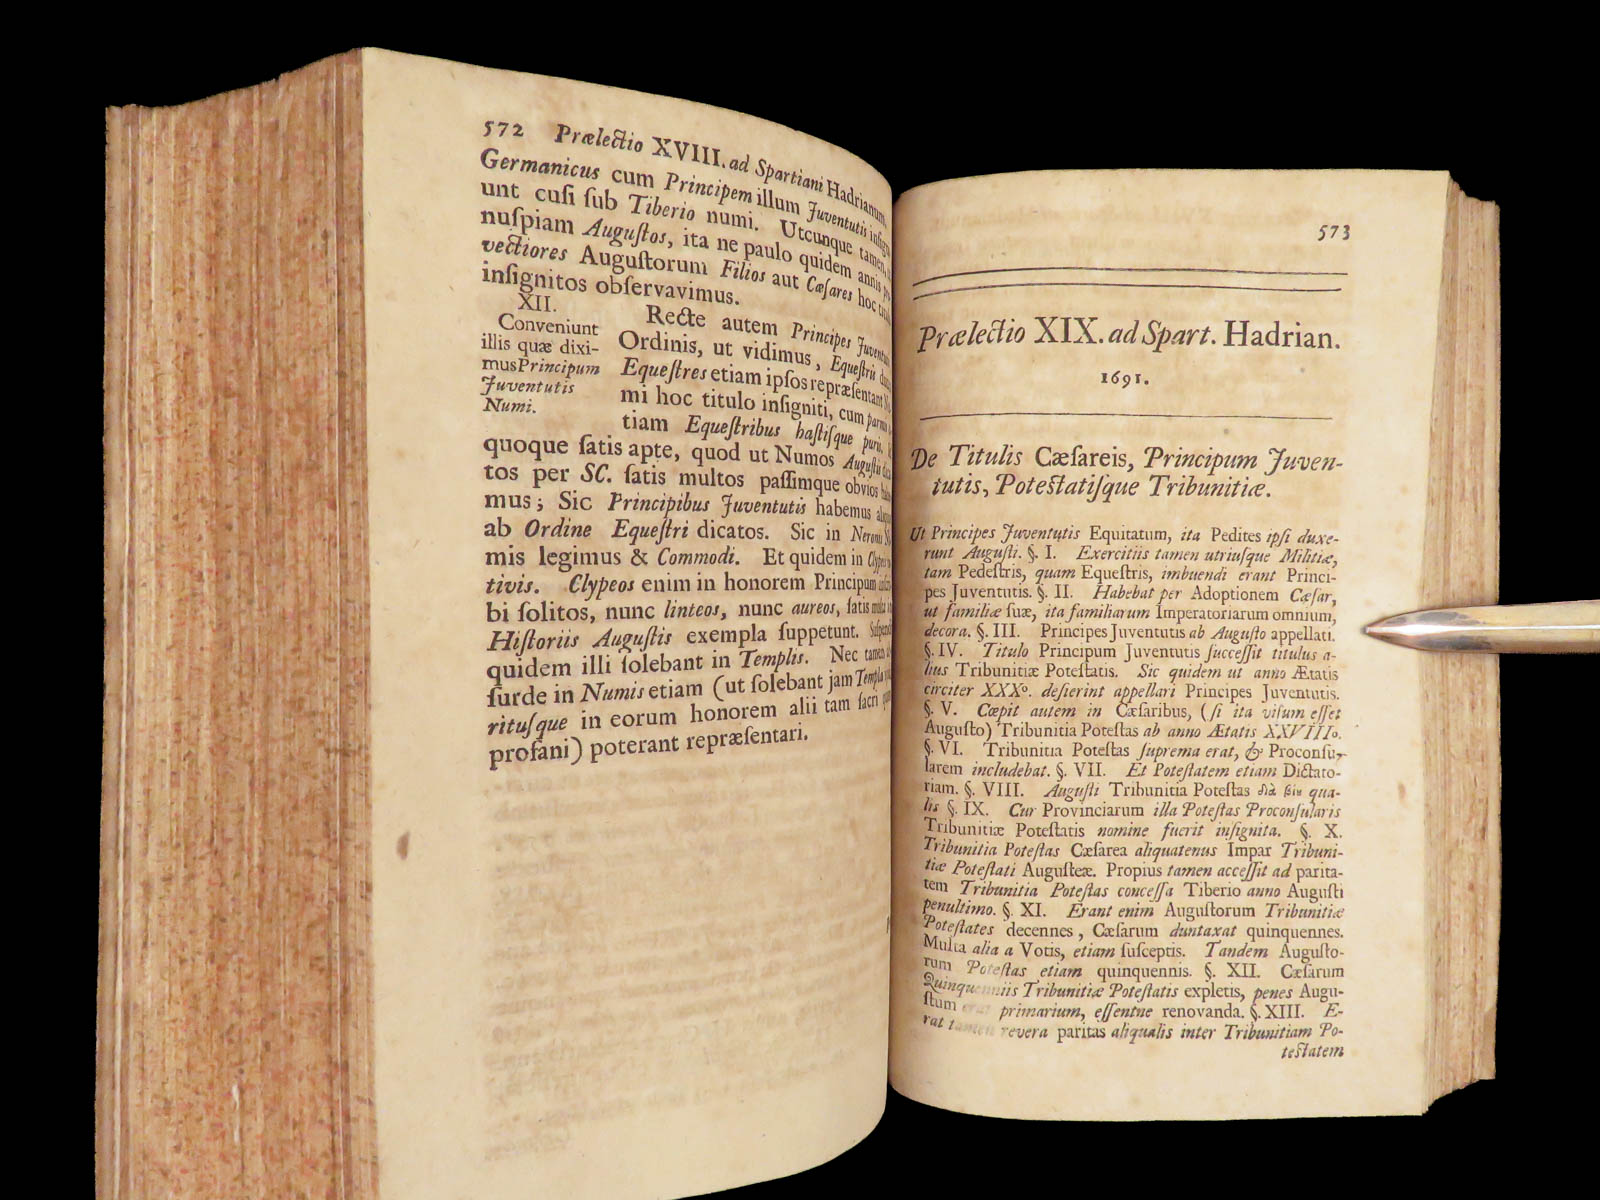 572 Prælectio XVIII. ad Spartiani Hadrianum.
Germanicus cum Principem illum Juventutis insign-
unt cusi sub Tiberio numi. Utcunque tamen,
nuſpiam Auguſtos, ita ne paulo quidem annis
vectiores Auguſtorum Filios aut Cæſares hoc
inſignitos obſervavimus.
XII.
Conveniunt
illis quæ dixi-
mus Principum
Juventutis
Numi.
Recte autem Principes
Ordinis, ut vidimus, Equeſtris
Equeſtres etiam ipſos repræſentant
mi hoc titulo inſigniti, cum
tiam Equeſtribus haſtiſque puris.
quoque ſatis apte, quod ut Numos Auguſtis
tos per SC. ſatis multos paſſimque obvios
mus; Sic Principibus Juventutis habemus
ab Ordine Equeſtri dicatos. Sic in Neronis
mis legimus & Commodi. Et quidem in
tivis. Clypeos enim in honorem Principum
bi ſolitos, nunc linteos, nunc aureos, ſatis multa
Hiſtoriis Auguſtis exempla ſuppetunt.
quidem illi ſolebant in Templis. Nec tamen
ſurde in Numis etiam (ut ſolebant jam Templa
rituſque in eorum honorem alii tam ſacri quam
profani) poterant repræſentari.
573
Prælectio XIX. ad Spart. Hadrian.
1691.
De Titulis Cæſareis, Principum Juven-
tutis, Poteſtatiſque Tribunitiæ.
Ut Principes Juventutis Equitatum, ita Pedites ipſi duxe-
runt Auguſti. §. I. Exercitiis tamen utriuſque Militiæ,
tam Pedeſtris, quam Equeſtris, imbuendi erant Princi-
pes Juventutis. §. II. Habebat per Adoptionem Cæſar,
ut familiæ ſuæ, ita familiarum Imperatoriarum omnium,
decora. §. III. Principes Juventutis ab Auguſto appellati.
§. IV. Titulo Principum Juventutis ſucceſſit titulus a-
lius Tribunitiæ Poteſtatis. Sic quidem ut anno Ætatis
circiter XXXº. deſierint appellari Principes Juventutis.
§. V. Cœpit autem in Cæſaribus, (ſi ita viſum eſſet
Auguſto) Tribunitia Poteſtas ab anno Ætatis XXVIIIº.
§. VI. Tribunitia Poteſtas ſuprema erat, & Proconſu-
larem includebat. §. VII. Et Poteſtatem etiam Dictato-
riam. §. VIII. Auguſti Tribunitia Poteſtas διὰ βίυ qua-
lis §. IX. Cur Provinciarum illa Poteſtas Proconſularis
Tribunitiæ Poteſtatis nomine fuerit inſignita. §. X.
Tribunitia Poteſtas Cæſarea aliquatenus Impar Tribuni-
tiæ Poteſtati Auguſteæ. Propius tamen acceſſit ad parita-
tem Tribunitia Poteſtas conceſſa Tiberio anno Auguſti
penultimo. §. XI. Erant enim Auguſtorum Tribunitiæ
Poteſtates decennes, Cæſarum duntaxat quinquennes.
Multa alia a Votis, etiam ſuſceptis. Tandem Auguſto-
rum Poteſtas etiam quinquennis. §. XII. Cæſarum
Quinquenniis Tribunitiæ Poteſtatis expletis, penes Augu-
ſtum erat primarium, eſſentne renovanda. §. XIII. E-
rat tamen revera paritas aliqualis inter Tribunitiam Po-
teſtatem